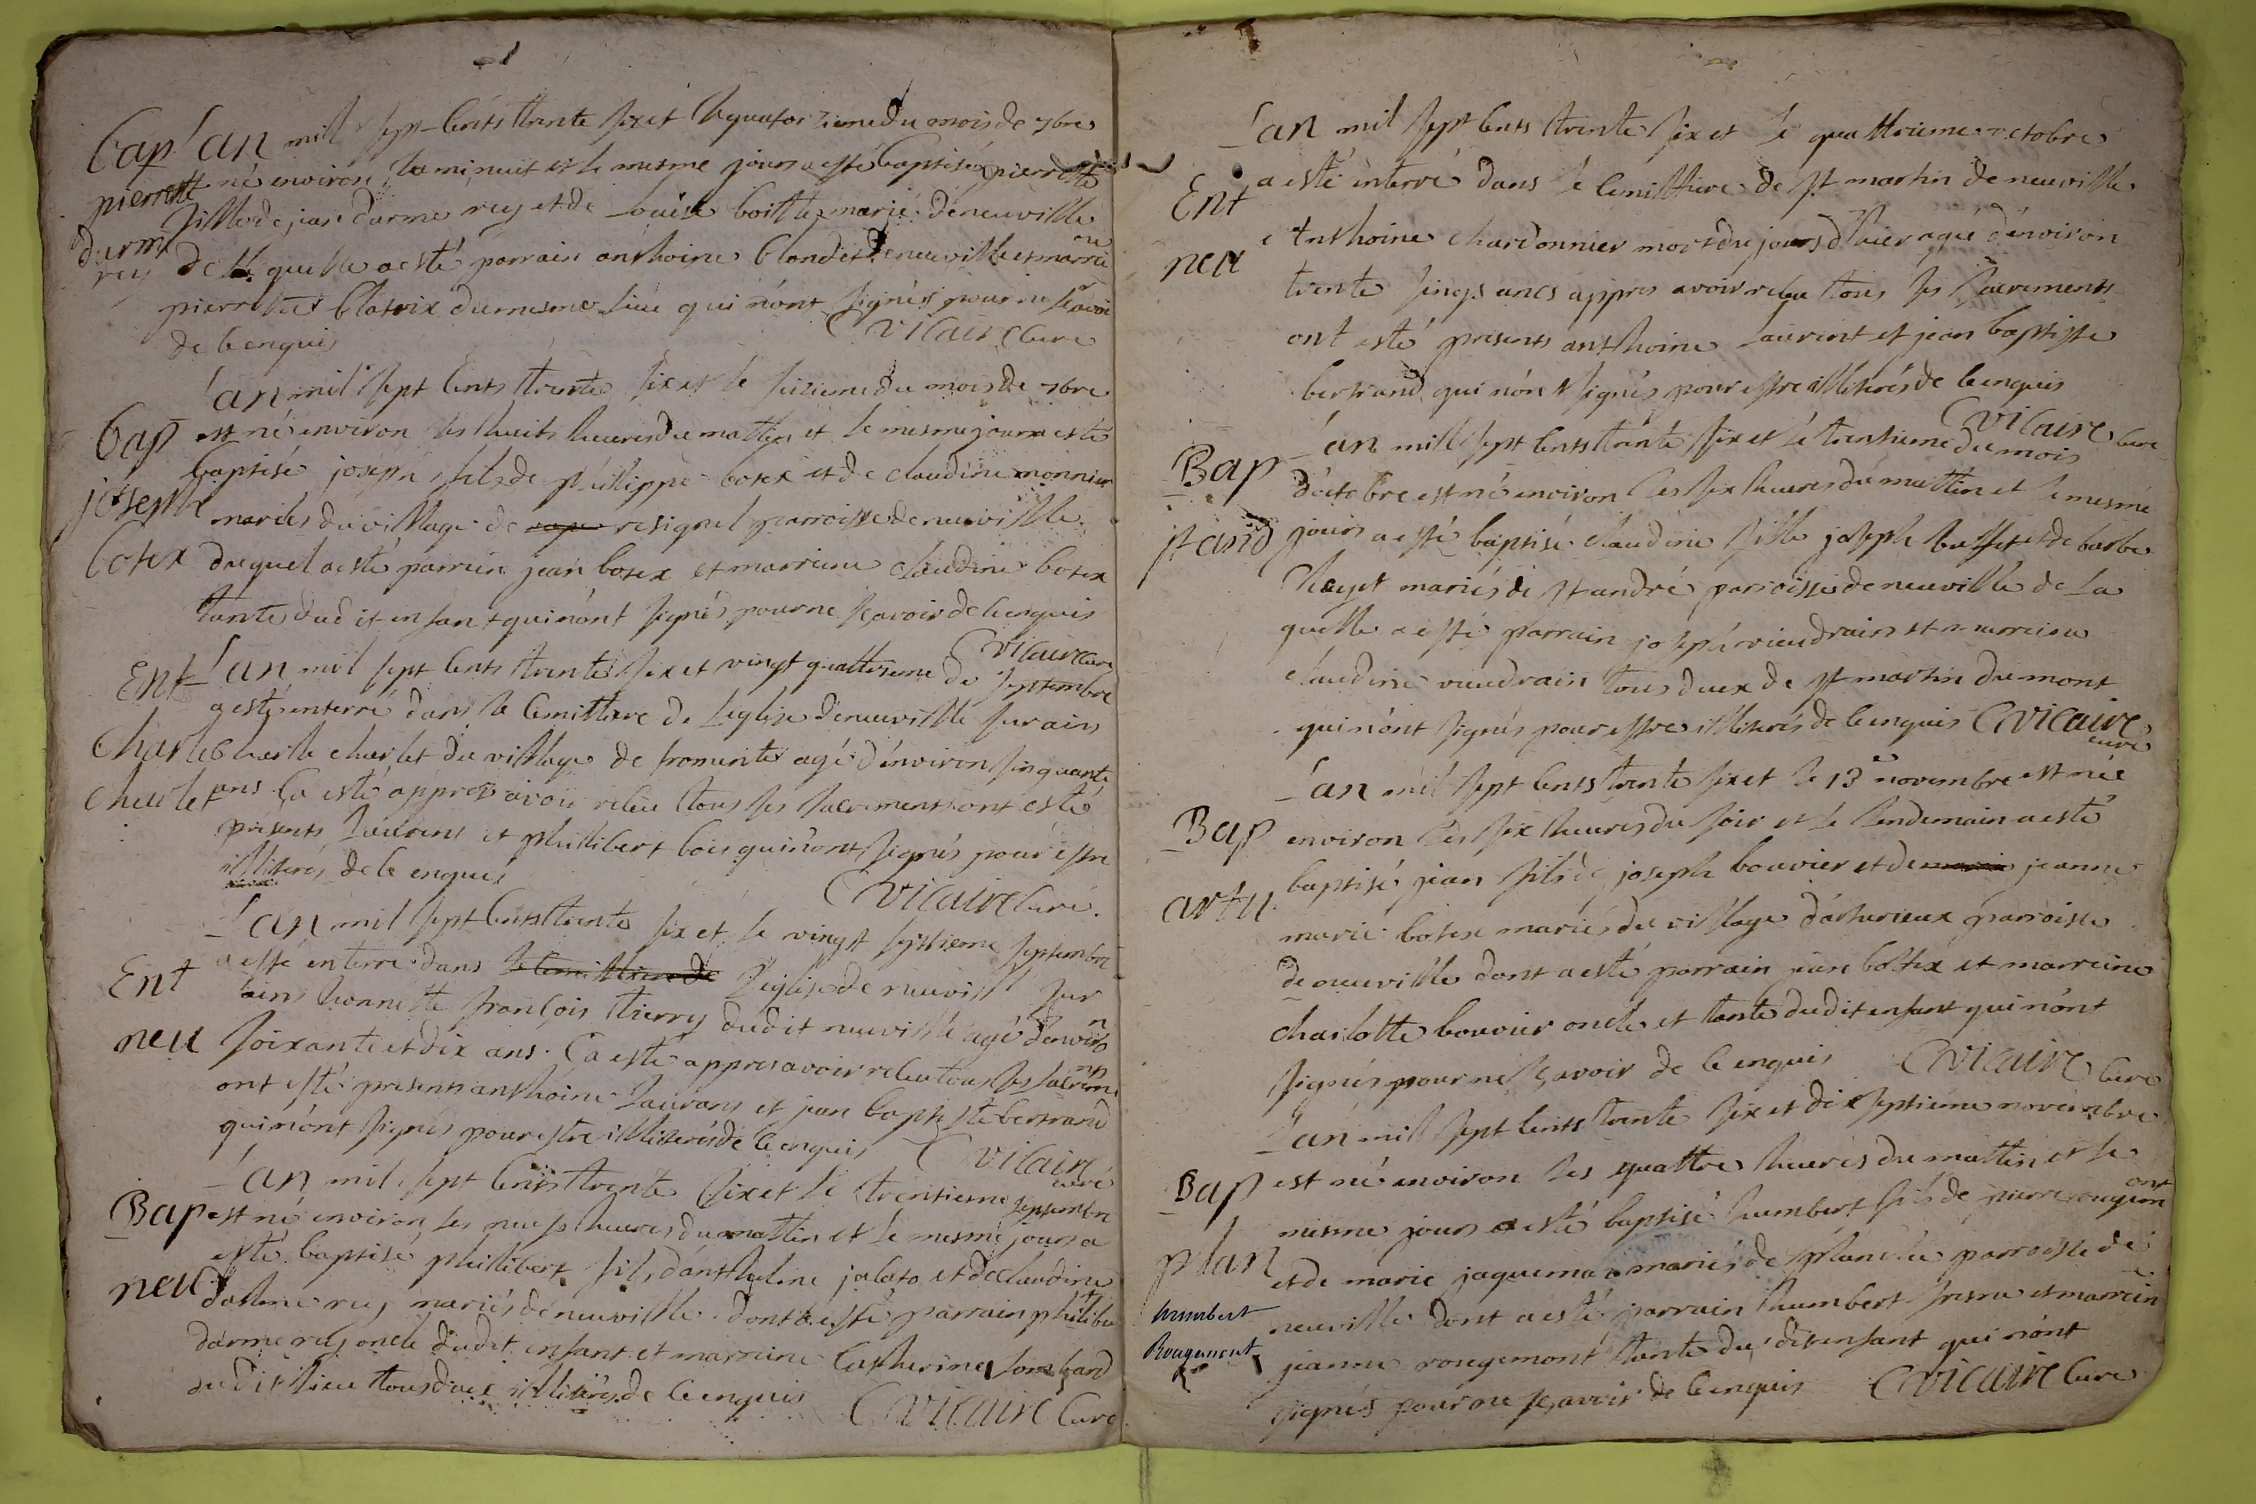 Bap
pierrette
darme
rey
L'an mil sept cents trente six et le quatorzieme du mois de 7bre
né environ la minuit et le mesme jours a esté baptisée pierrette
fille de jean darme rey et de Louise boitte mariés de neuville
de la quelle a esté parrain anthoine blondet de neuville et marraine
pierrette du mesme lieu qui n'ont signés pour ne sçavoir
de ce enquis Cvicaire Cure
L'an mil sept cents trente six et le sezieme du mois de 7bre
Bap
joseph
botex
est né environ les huits heures du mattin et le mesme jours a esté
baptisé joseph fils de phillippe botex et de claudine monnier
mariés du village de resignel parroisse de neuville
duquel a esté parrain jean botex et marreine claudine botex
tante dudit enfant qui n'ont signés pour ne sçavoir de ce enquis
Cvicaire Cure
Ent
Charle
charlet
L'an mil sept cents trente six et vingt quattrieme de septembre
a esté enterré dans le cemittiere de l'eglise de neuville sur ains
Charle charlet du village de fromente agé d'environ sinquante
ans ça esté appres avoir receu tous ses sacrements ont esté
presents Laurens et phillibert bois qui n'ont signés pour estre
illiterés de ce enquis
Cvicaire Curé.
L'an mil sept cents trente six et le vingt septieme septembre
Ent
neu
a esté enterré dans le cemittiere de l'eglise de neuvill sur
ains honnette françois thierry dudit neuville agé d'environ
soixante et dix ans. Ça esté appres avoir receu tous ses sacrem
ont esté presents anthoine Laurans et jean baptiste bertrand
qui n'ont signés pour estre illiterés de ce enquis Cvicaire
curé
L'an mil sept cents trente six et le trentieme septembre
Bap
neu
est né environ les neufs heures du mattin et le mesme jours a
esté baptisé phillibert fils d'anthelme et de claudine
darme rey mariés de neuville dont a esté parrain philibert
darme rey oncle dudit enfant et marreine Catherine
dudit lieu tous duex illiterés de ce enquis
Cvicaire Cure
L'an mil sept cents trente six et le quattrieme octobre
Ent
neu
a esté enterré dans le cemittiere de st martin de neuville
Anthoine chardonnier mort du jours d'hier agé d'environ
trente sinqs ancs appres avoir receu tous ses sacrements
ont esté presents anthoine Laurent et jean baptiste
bertrand qui n'ont signés pour estre illiterés de ce enquis
Cvicaire Cure
L'an mill sept cents trente six et le trentieme du mois
Bap
st and
d'octobre est né environ les six heures du mattin et le mesme
jours a esté baptisé claudine fille joseph buffet et de barbe
mariés de st andré parroisse de neuville de la
quelle a esté parrain joseph vieudrain et marreine
claudine vieudrain tous duex de st martin du mont
qui n'ont signés pour estre illiterés de ce enquis Cvicaire
curé
L'an mil sept cents trente six et le 13e novembre est née
Bap
artu
environ les six heures du soir et le lendemain a esté
baptisé jean fils de joseph bouvier et de marie jeanne
marie botex mariés du village d'arturieux parroisse
de neuville dont a esté parrain jean bottex et marreine
charlotte bouvier oncle et tante dudit enfant qui n'ont
signés pour ne sçavoir de ce enquis Cvicaire Cure
L'an mil sept cents trente six et dix septieme novembre
Bap
plan
humbert
Rougemont
est né environ les quattre heures du mattin et le
mesme jours a esté baptisé humbert fils de pierre rougemont
et de marie jaquema mariés de planche parroisse de
neuville dont a esté parrain humbert et marrein
jeanne rougemont tante du dit enfant qui n'ont
signés pour ne sçavoir de ce enquis Cvicaire Cure